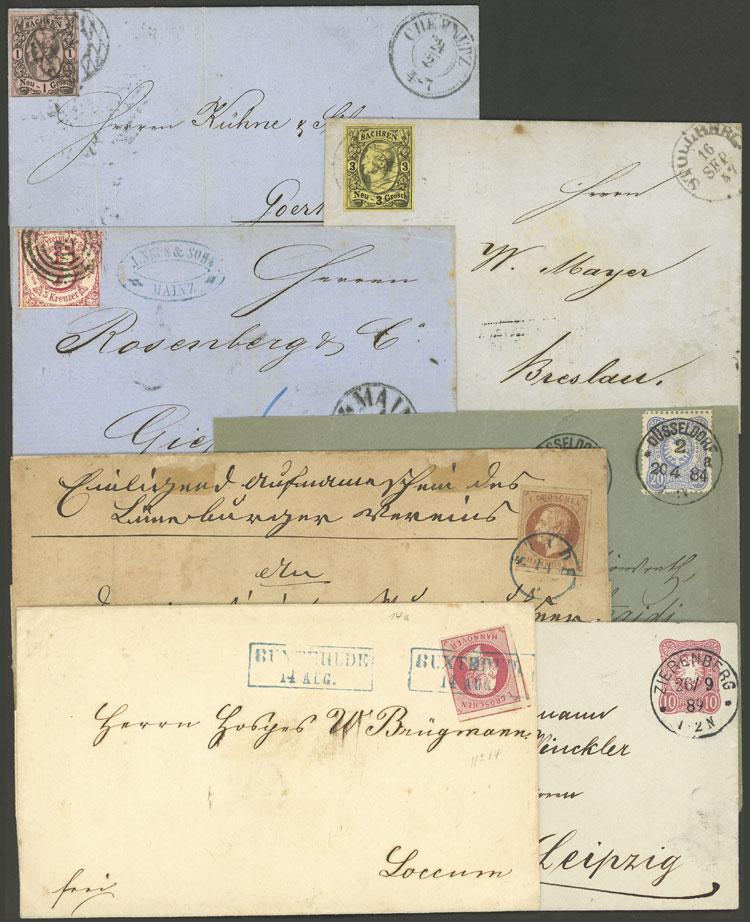 SACHSEN
1 1
Neu-1 Grosch
CHEMNITZ
4-7
Herren Kühne &
SACHSEN
3 3
Neu-3 Grosch
STOLLBERG
16
SEP
Herrn
W. Mayer
Breslau.
3 Kreuzer
& SOHN
MAINZ
Herren
Rosenberg & C°
MAIN
DÜSSELDORF
2.
a
20 4 84
20
SSELDO
Einliegend Aufnahmeschein des
Lüneburger Vereins
an
1 GROSCHEN
STADE
14a
BUXTEHUDE
14 AUG.
BUXTEHUDE
14 AUG.
HANNOVER
1 GROSCHEN
Herrn Hospes W Brügmann
No 14
Loccum
frei
ZIERENBERG
26/9
89
1-2N
10 10
mann
Winckler
Leipzig